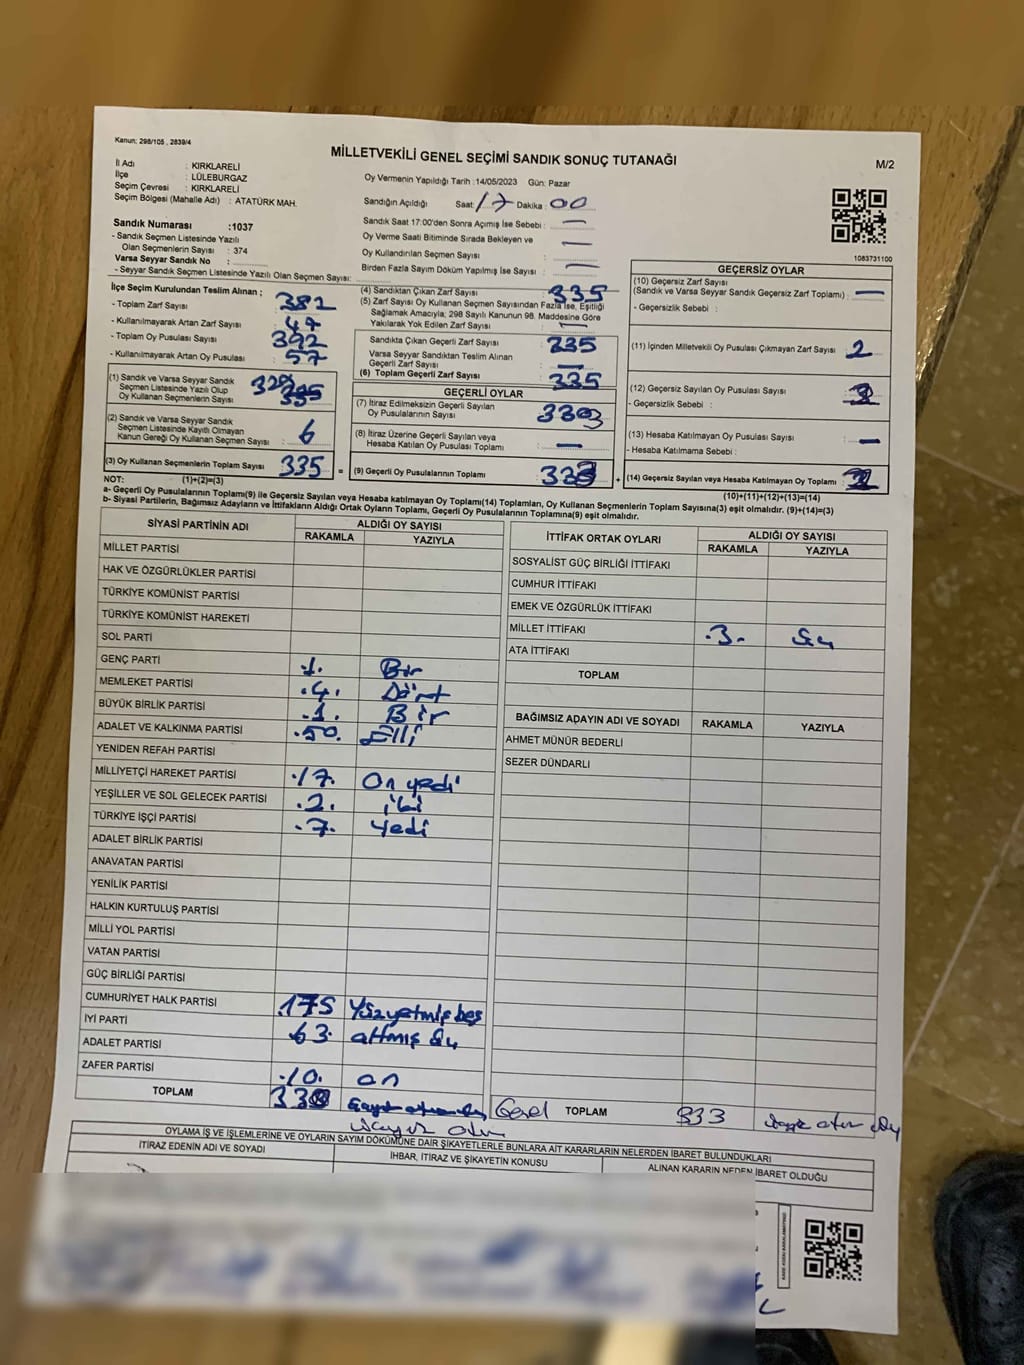 Kanun: 298/105 , 2839/4
MİLLETVEKİLİ GENEL SEÇİMİ SANDIK SONUÇ TUTANAĞI
M/2
İl Adı : KIRKLARELİ
İlçe : LÜLEBURGAZ
Seçim Çevresi : KIRKLARELİ
Seçim Bölgesi (Mahalle Adı) : ATATÜRK MAH.
Sandık Numarası :1037
- Sandık Seçmen Listesinde Yazılı
Olan Seçmenlerin Sayısı : 374
Varsa Seyyar Sandık No :
- Seyyar Sandık Seçmen Listesinde Yazılı Olan Seçmen Sayısı:
Oy Vermenin Yapıldığı Tarih :14/05/2023 Gün: Pazar
Sandığın Açıldığı Saat: 17 Dakika: 00
Sandık Saat 17:00'den Sonra Açımış İse Sebebi : —
Oy Verme Saati Bitiminde Sırada Bekleyen ve
Oy Kullandırılan Seçmen Sayısı : —
Birden Fazla Sayım Döküm Yapılmış İse Sayısı : —
1083731100
İlçe Seçim Kurulundan Teslim Alınan ;
- Toplam Zarf Sayısı : 382
- Kullanılmayarak Artan Zarf Sayısı : 47
- Toplam Oy Pusulası Sayısı : 392
- Kullanılmayarak Artan Oy Pusulası : 57
(1) Sandık ve Varsa Seyyar Sandık
Seçmen Listesinde Yazılı Olup
Oy Kullanan Seçmenlerin Sayısı : 329
(2) Sandık ve Varsa Seyyar Sandık
Seçmen Listesinde Kayıtlı Olmayan
Kanun Gereği Oy Kullanan Seçmen Sayısı : 6
(3) Oy Kullanan Seçmenlerin Toplam Sayısı : 335
(4) Sandıktan Çıkan Zarf Sayısı : 335
(5) Zarf Sayısı Oy Kullanan Seçmen Sayısından Fazla İse, Eşitliği
Sağlamak Amacıyla; 298 Sayılı Kanunun 98. Maddesine Göre
Yakılarak Yok Edilen Zarf Sayısı : —
Sandıkta Çıkan Geçerli Zarf Sayısı : 335
Varsa Seyyar Sandıktan Teslim Alınan
Geçerli Zarf Sayısı : —
(6) Toplam Geçerli Zarf Sayısı : 335
GEÇERLİ OYLAR
(7) İtiraz Edilmeksizin Geçerli Sayılan
Oy Pusulalarının Sayısı :
(8) İtiraz Üzerine Geçerli Sayılan veya
Hesaba Katılan Oy Pusulası Toplamı : —
= (9) Geçerli Oy Pusulalarının Toplamı : 333 +
GEÇERSİZ OYLAR
(10) Geçersiz Zarf Sayısı
(Sandık ve Varsa Seyyar Sandık Geçersiz Zarf Toplamı) : —
- Geçersizlik Sebebi :
(11) İçinden Milletvekili Oy Pusulası Çıkmayan Zarf Sayısı : 2
(12) Geçersiz Sayılan Oy Pusulası Sayısı :
- Geçersizlik Sebebi :
(13) Hesaba Katılmayan Oy Pusulası Sayısı : —
- Hesaba Katılmama Sebebi :
(14) Geçersiz Sayılan veya Hesaba Katılmayan Oy Toplamı :
NOT: (1)+(2)=(3)
(10)+(11)+(12)+(13)=(14)
a- Geçerli Oy Pusulalarının Toplamı(9) ile Geçersiz Sayılan veya Hesaba katılmayan Oy Toplamı(14) Toplamları, Oy Kullanan Seçmenlerin Toplam Sayısına(3) eşit olmalıdır. (9)+(14)=(3)
b- Siyasi Partilerin, Bağımsız Adayların ve İttifakların Aldığı Ortak Oyların Toplamı, Geçerli Oy Pusulalarının Toplamına(9) eşit olmalıdır.
SİYASİ PARTİNİN ADI ALDIĞI OY SAYISI
RAKAMLA YAZIYLA
MİLLET PARTİSİ
HAK VE ÖZGÜRLÜKLER PARTİSİ
TÜRKİYE KOMÜNİST PARTİSİ
TÜRKİYE KOMÜNİST HAREKETİ
SOL PARTİ
GENÇ PARTİ .1. Bir
MEMLEKET PARTİSİ .4. Dört
BÜYÜK BİRLİK PARTİSİ .1. Bir
ADALET VE KALKINMA PARTİSİ .50. Elli
YENİDEN REFAH PARTİSİ
MİLLİYETÇİ HAREKET PARTİSİ .17. On yedi
YEŞİLLER VE SOL GELECEK PARTİSİ .2. iki
TÜRKİYE İŞÇİ PARTİSİ .7. Yedi
ADALET BİRLİK PARTİSİ
ANAVATAN PARTİSİ
YENİLİK PARTİSİ
HALKIN KURTULUŞ PARTİSİ
MİLLİ YOL PARTİSİ
VATAN PARTİSİ
GÜÇ BİRLİĞİ PARTİSİ
CUMHURİYET HALK PARTİSİ .175 Yüzyetmiş beş
İYİ PARTİ 63. altmış üç
ADALET PARTİSİ
ZAFER PARTİSİ .10. on
TOPLAM
İTTİFAK ORTAK OYLARI ALDIĞI OY SAYISI
RAKAMLA YAZIYLA
SOSYALİST GÜÇ BİRLİĞİ İTTİFAKI
CUMHUR İTTİFAKI
EMEK VE ÖZGÜRLÜK İTTİFAKI
MİLLET İTTİFAKI .3. Üç
ATA İTTİFAKI
TOPLAM
BAĞIMSIZ ADAYIN ADI VE SOYADI RAKAMLA YAZIYLA
AHMET MÜNÜR BEDERLİ
SEZER DÜNDARLI
Genel TOPLAM 333
OYLAMA İŞ VE İŞLEMLERİNE VE OYLARIN SAYIM DÖKÜMÜNE DAİR ŞİKAYETLERLE BUNLARA AİT KARARLARIN NELERDEN İBARET BULUNDUKLARI
İTİRAZ EDENİN ADI VE SOYADI İHBAR, İTİRAZ VE ŞİKAYETİN KONUSU ALINAN KARARIN NEDEN İBARET OLDUĞU